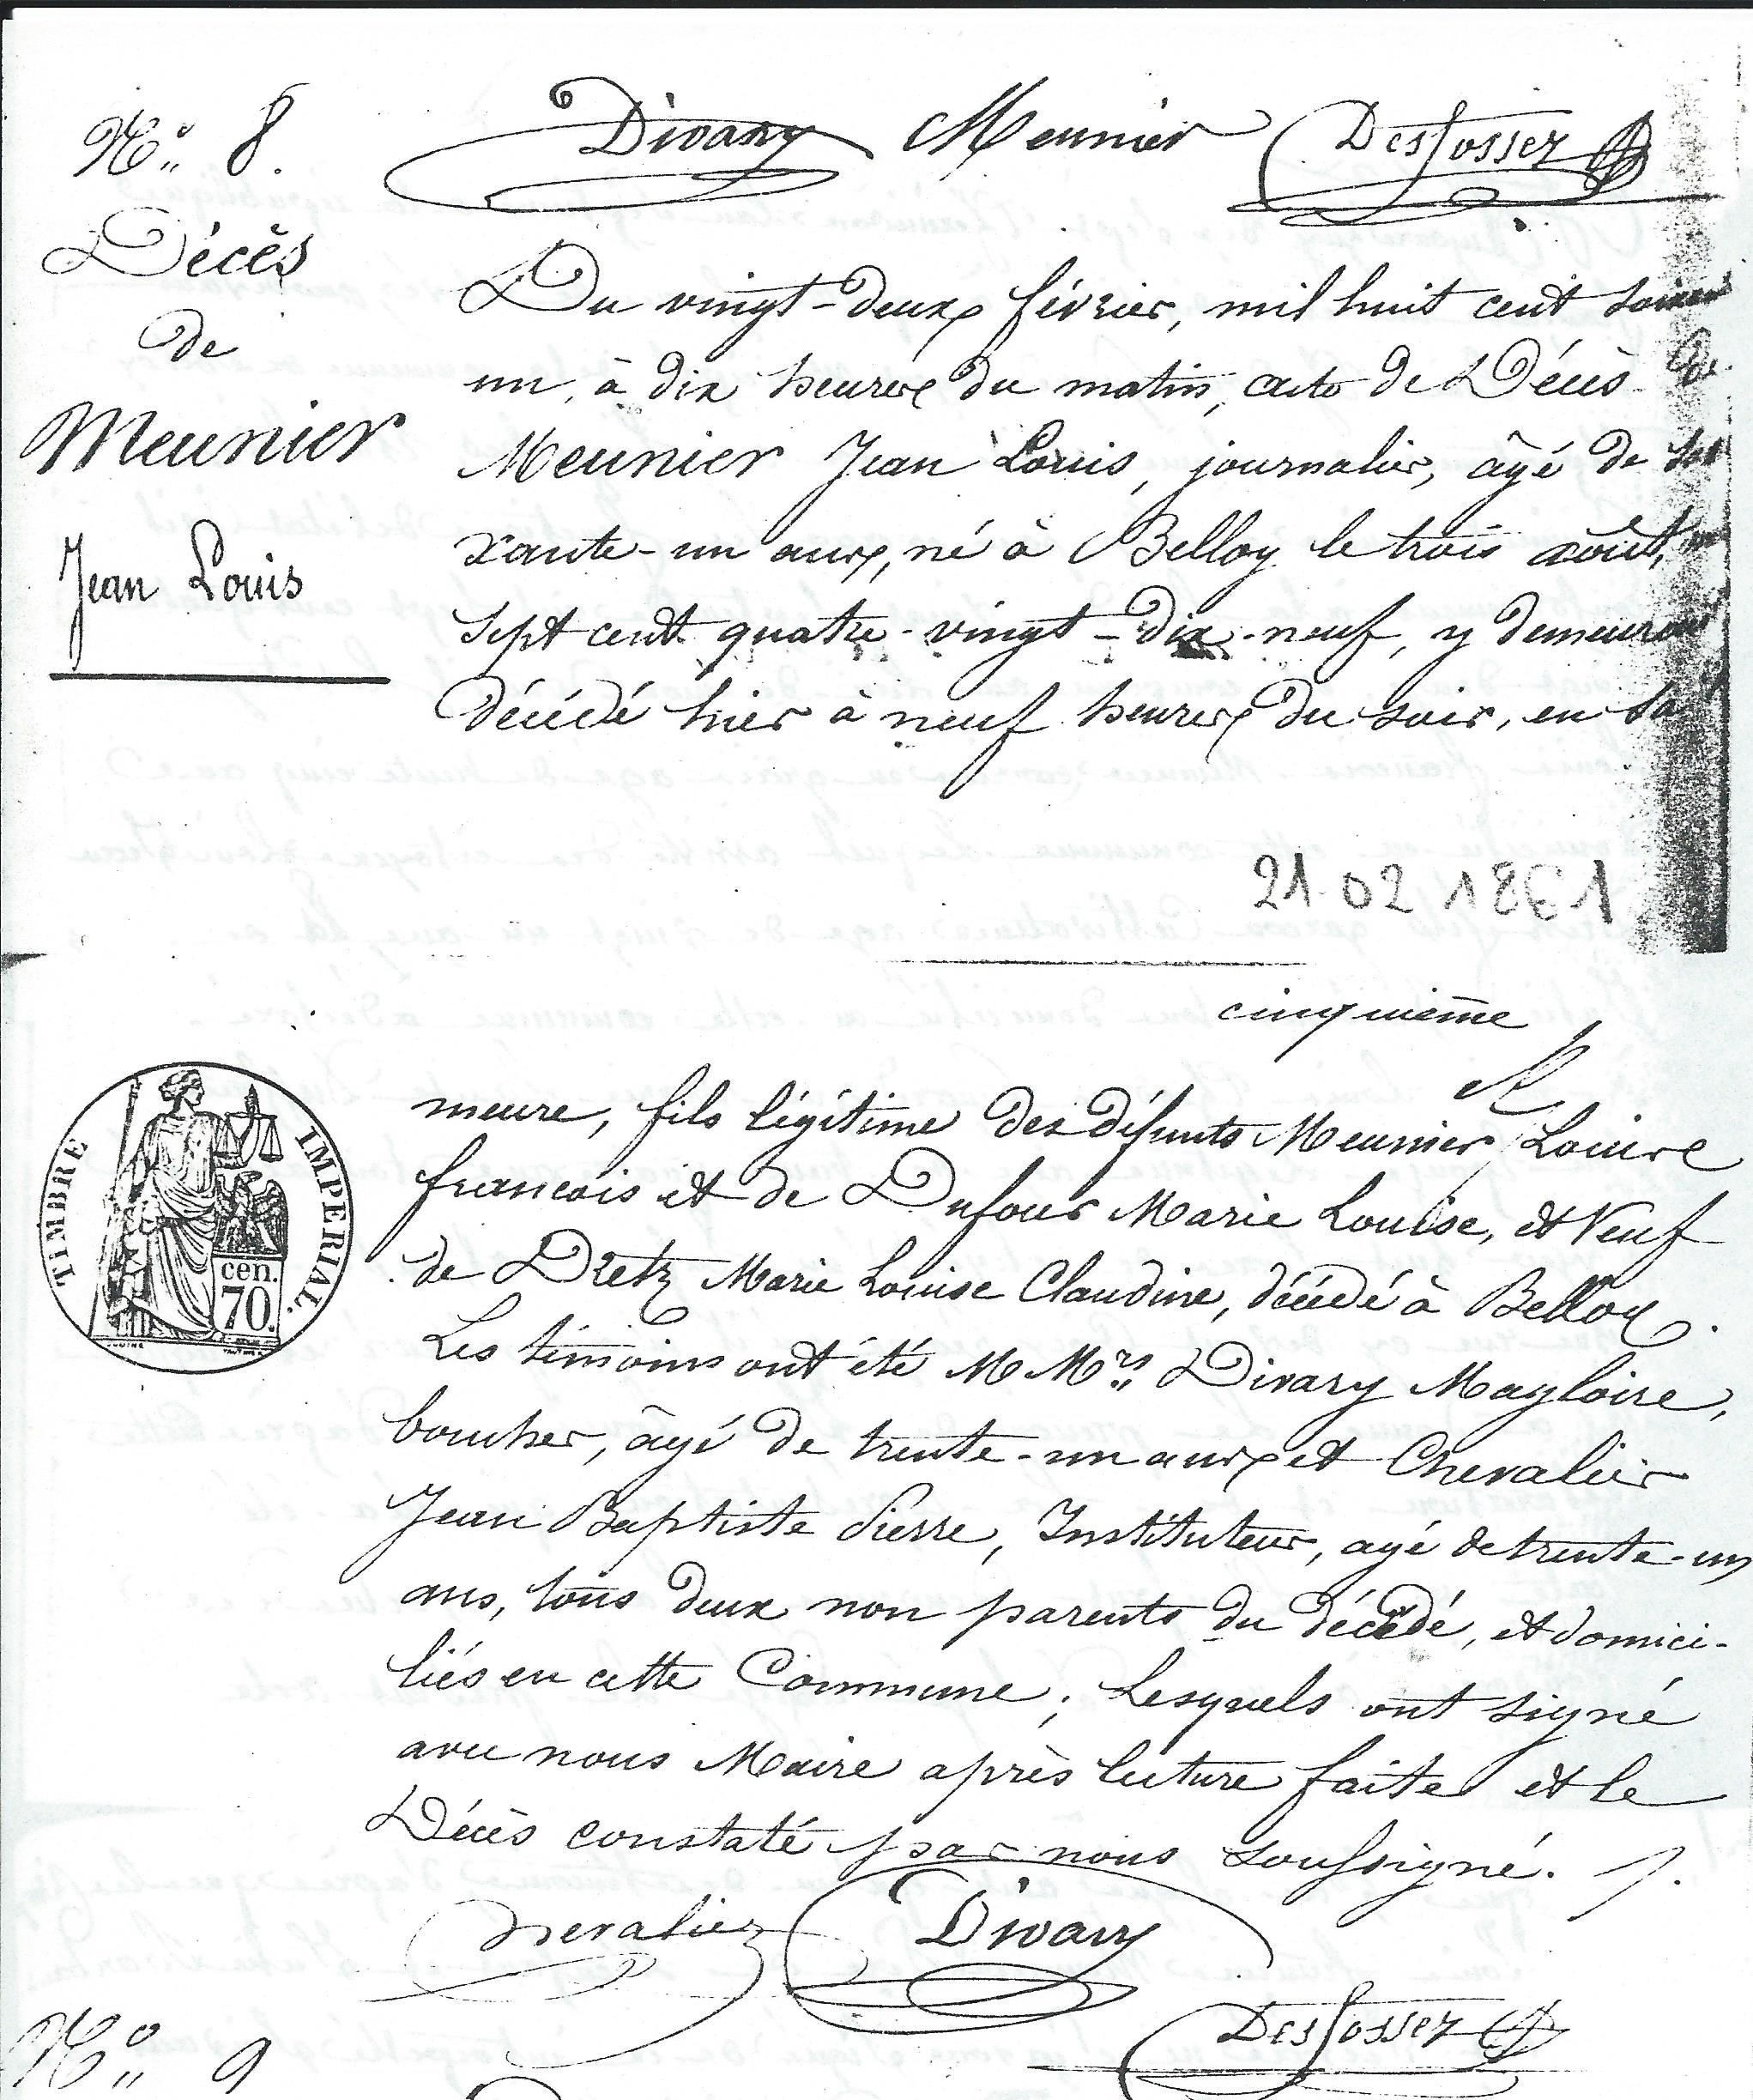 N° 8.
Divary Meunier Desfossez
Décès
de
Meunier
Jean Louis
Du vingt-deux février, mil huit cent soixan
un, à dix heures du matin, acte de Décès de
Meunier Jean Louis, journalier, âgé de soi
xante-un ans, né à Belloy le trois août,
sept cent quatre-vingt-dix-neuf, y demeurant
décédé hier à neuf heures du soir, en sa
21 02 1861
cinquième
TIMBRE IMPERIAL.
cen.
70.
meure, fils légitime des défunts Meunier Louis
françois et de Dufour Marie Louise, et Veuf
de Dretz Marie Louise Claudine, décédé à Belloy.
Les témoins ont été M Mrs Divary Magloire,
boucher, âgé de trente-un ans et Chevalier
Jean Baptiste Pierre, Instituteur, agé de trente-un
ans, tous deux non parents du décédé, et domici-
liés en cette Commune; Lesquels ont signé
avec nous Maire après lecture faite et le
Décès constaté par nous soussigné.
Chevalier Divary
Desfossez
N° 9